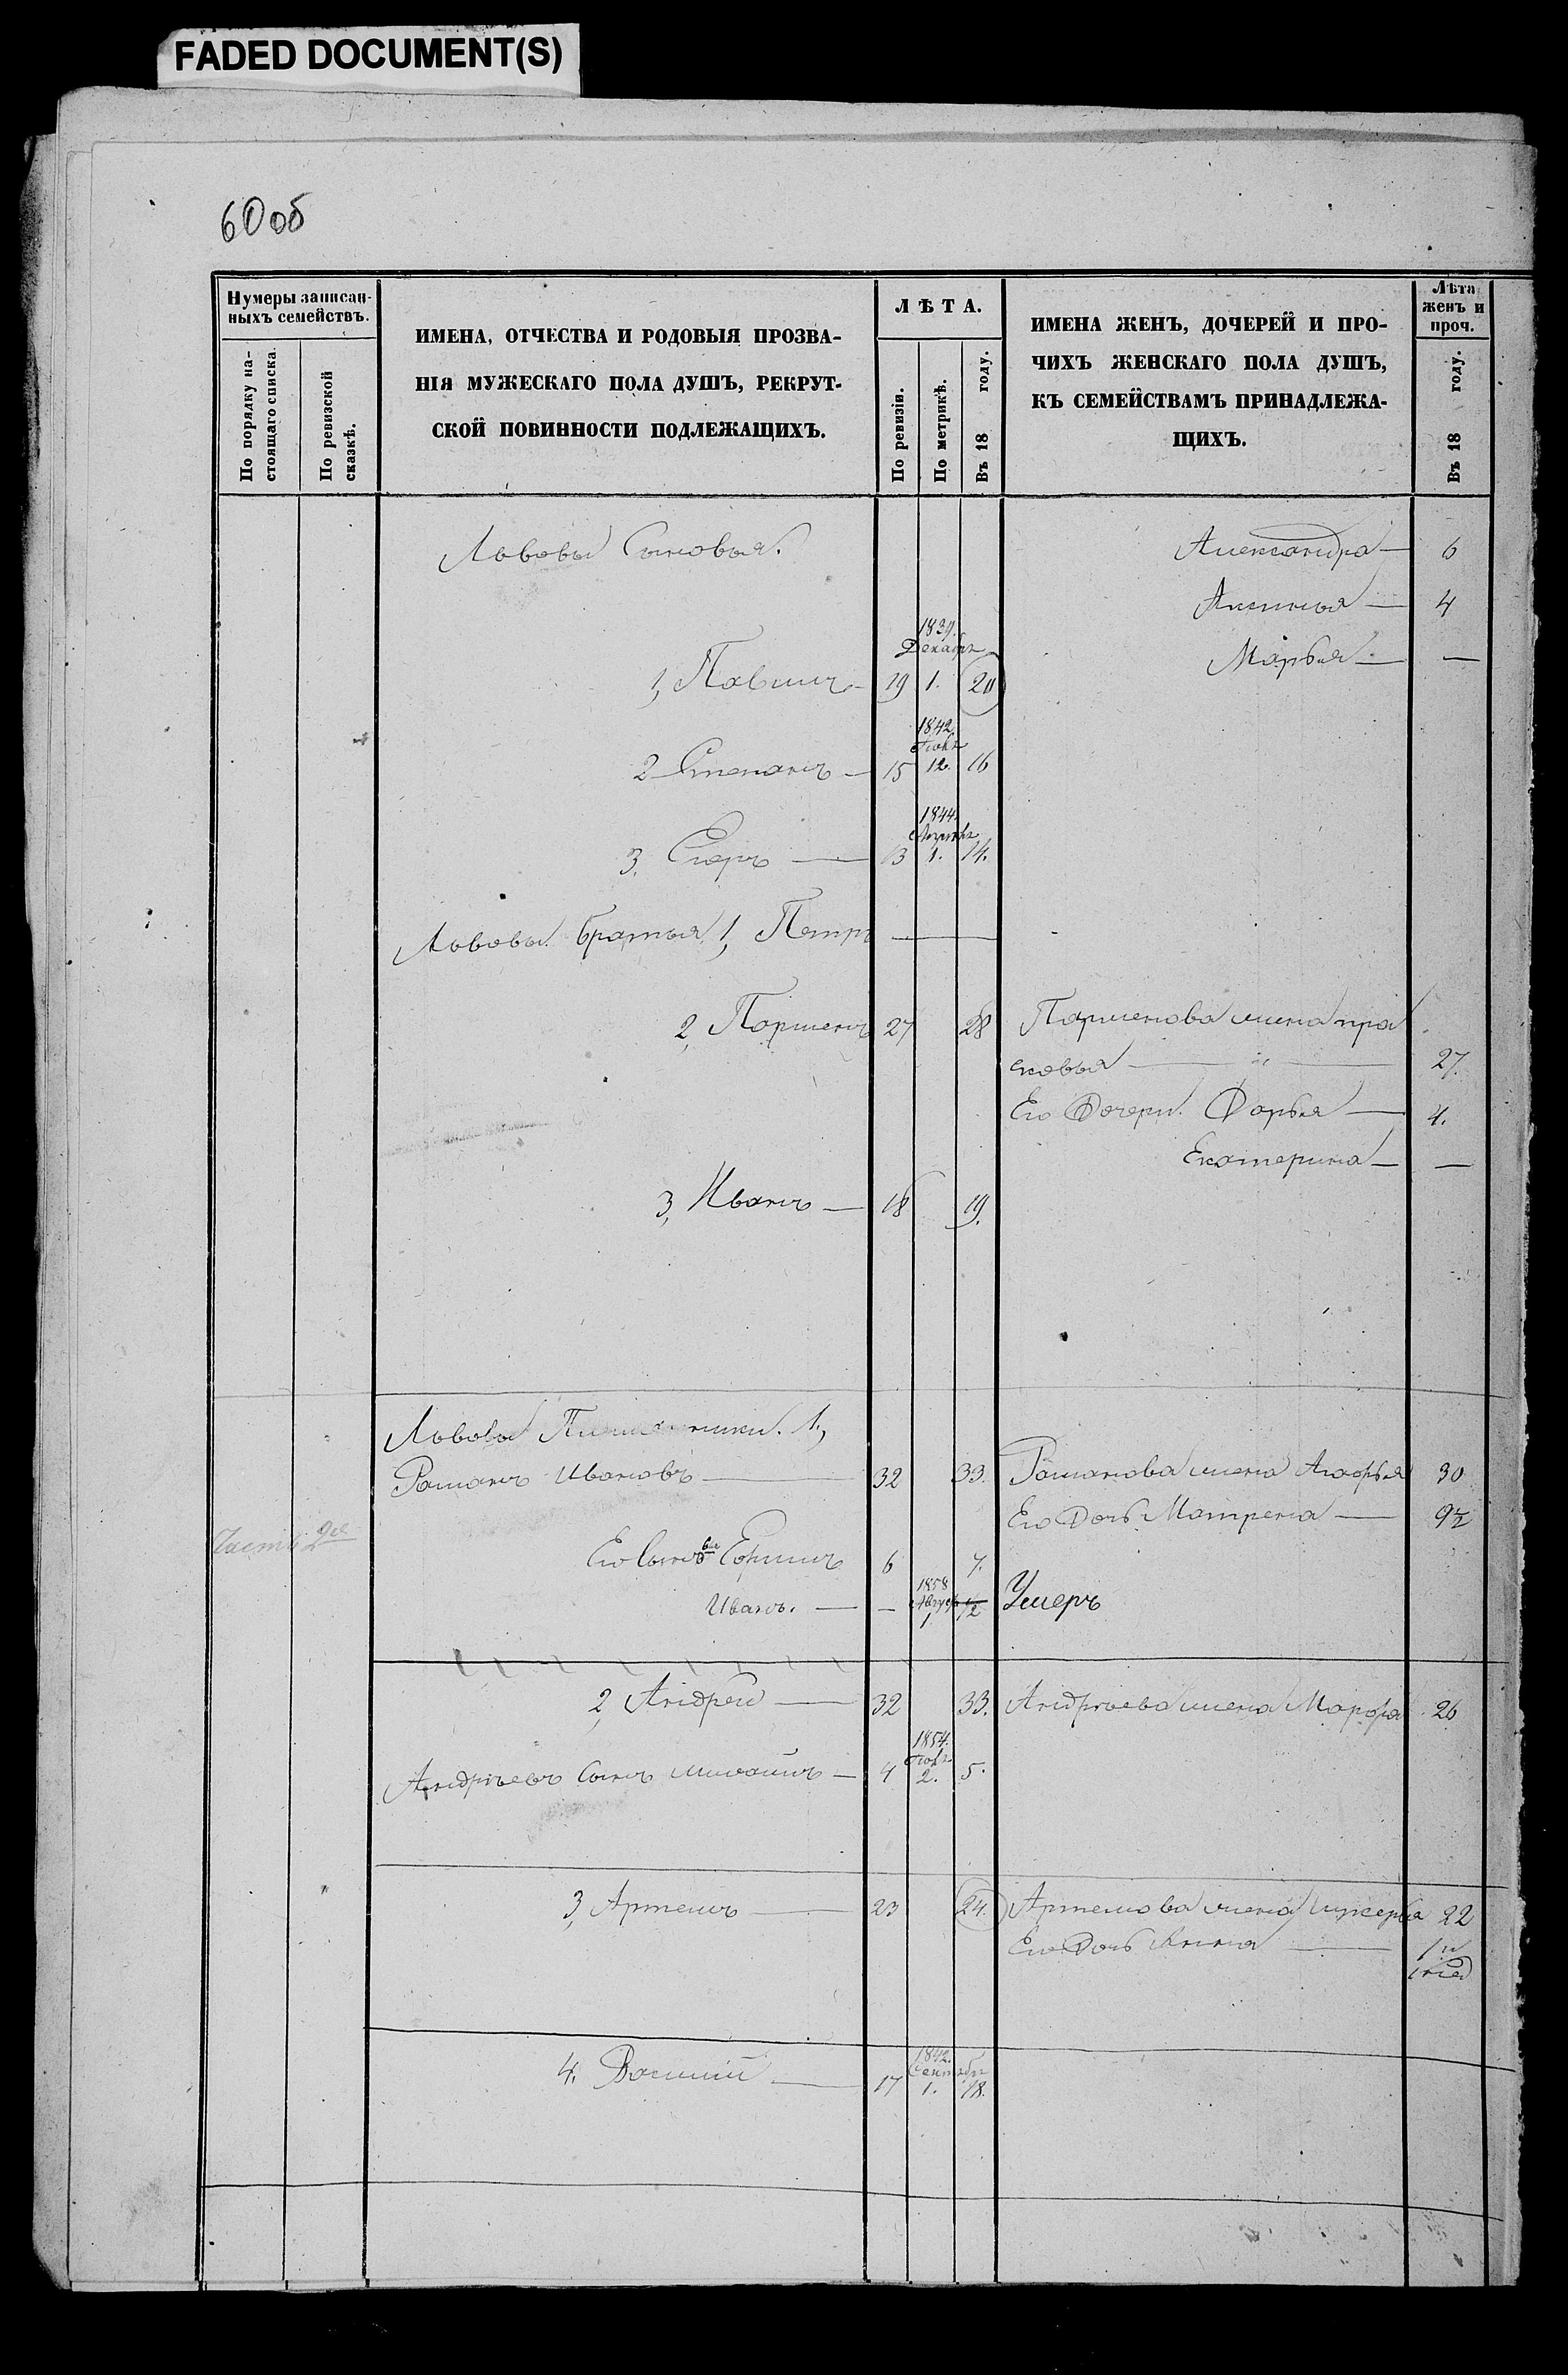 FADED DOCUMENT(S)
60об
Нумеры записан-
ныхъ семействъ.
По порядку на-
стоящаго списка.
По ревизской
сказкѣ.
ИМЕНА, ОТЧЕСТВА И РОДОВЫЯ ПРОЗВА-
НІЯ МУЖЕСКАГО ПОЛА ДУШЪ, РЕКРУТ-
СКОЙ ПОВИННОСТИ ПОДЛЕЖАЩИХЪ.
ЛѢТА.
По ревизіи.
По метрикѣ.
Въ 18 году.
ИМЕНА ЖЕНЪ, ДОЧЕРЕЙ И ПРО-
ЧИХЪ ЖЕНСКАГО ПОЛА ДУШЪ,
КЪ СЕМЕЙСТВАМЪ ПРИНАДЛЕЖА-
ЩИХЪ.
Лѣта
женъ и
проч.
Въ 18 году.
Львовы Сыновья. Александра — 6
Аксинья — 4
1839. Декабр Марья — —
1, Павилъ — 19 1. 20
1842. Іюля
2 Степанъ — 15 12. 16
1844. Апреля
3. Егоръ — 13 1. 14.
Львовы братья 1, Петръ —
2, Парменъ 27 28 Парменова жена пра
сковья — " — 27.
Его Дочери. Дарья — 4.
Екатерина — —
3, Иванъ — 18 19.
Львовы Племянники. 1,
Романъ Ивановъ — 32 33. Романова жена Агафья 30
Его Дочь Матрена — 9½
Часть 2я
Его Сыновья Ефимъ 6 7.
1858 Август
Иванъ. — — 1 ½ Умеръ
2, Андрей — 32 33. Андрѣева жена Марфа 26
1854. Іюля
Андрѣевъ сынъ михайлъ — 4 2. 5.
3, Артемъ — 23 24. Артемова жена Лукерья 22
Его Дочь Анна — 1 н
1842. Сентябр
4. Василій — 17 1. 18.